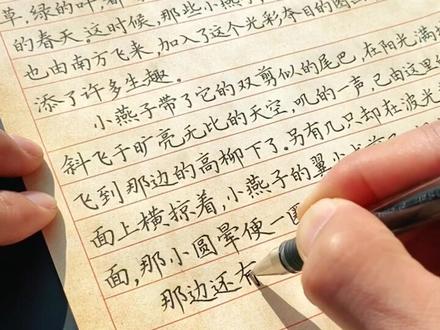 草,绿的叶,
的春天.这时候,那些小燕子,
也由南方飞来,加入了这个光彩夺目的图
添了许多生趣.
小燕子带了它的双剪似的尾巴,在阳光满
斜飞于旷亮无比的天空,叽的一声,已由这里
飞到那边的高柳下了.另有几只却在波光
面上横掠着,小燕子的翼
面,那小圆晕便一
那边还有